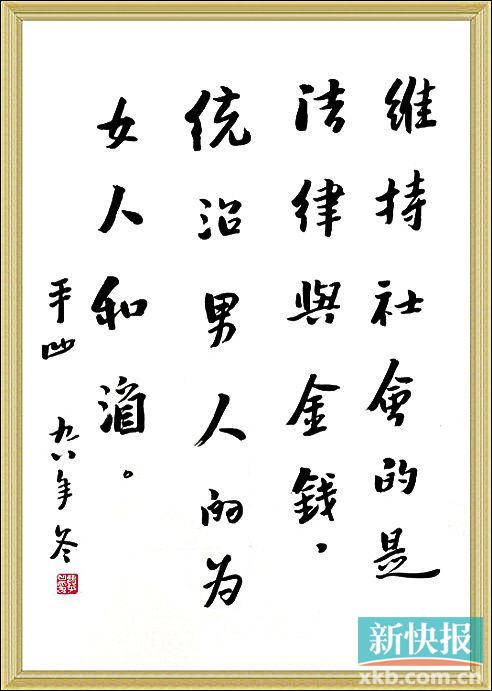 維持社會的是
法律與金錢，
统治男人的为
女人和酒。
平凹 九八年冬
新快报
xkb.com.cn